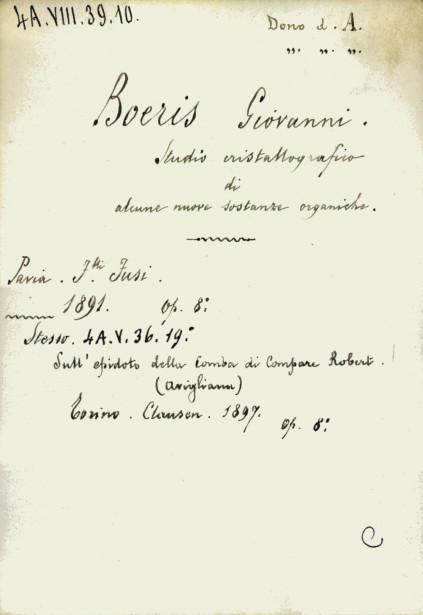 4A.VIII.39.10.
Dono d. A.
„ „ „.
Boeris Giovanni.
Studio cristallografico
di
alcune nuove sostanze organiche.
Pavia. F.lli Fusi.
1891. op. 8°
Stesso. 4A.V.36.19.
Sull' epidoto della Comba di Compare Robert.
(Avigliana)
Torino. Clausen. 1897.
op. 8°
C